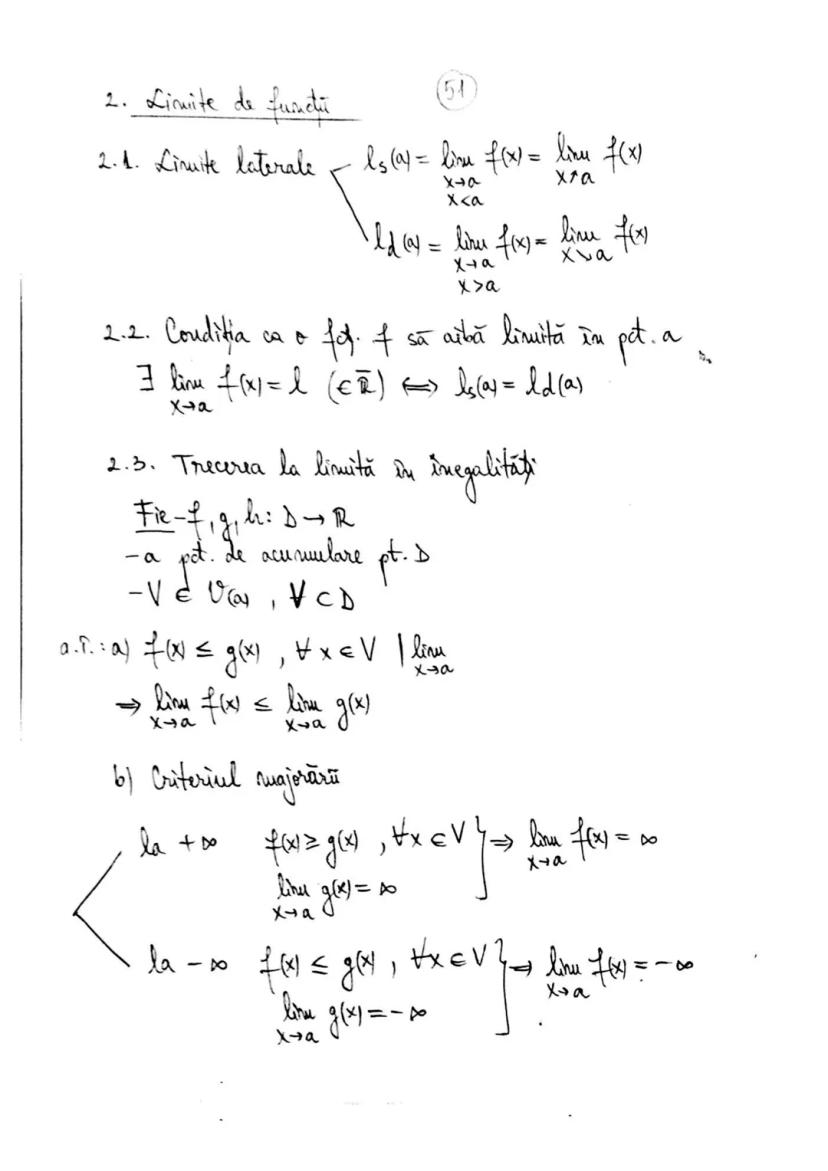 51
2. Limite de funcții
2.1. Limite laterale
ls(a) = lim f(x) = lim f(x)
x→a x↗a
x<a
ld(a) = lim f(x) = lim f(x)
x→a x↘a
x>a
2.2. Condiția ca o fcț. f să aibă limită în pct. a
∃ lim f(x) = l (∈ R̄) ⇔ ls(a) = ld(a)
x→a
2.3. Trecerea la limită în inegalități
Fie - f, g, h: D → R
- a pct. de acumulare pt. D
- V ∈ V(a), V ⊂ D
a.î.: a) f(x) ≤ g(x), ∀ x ∈ V | lim
x→a
⇒ lim f(x) ≤ lim g(x)
x→a x→a
b) Criteriul majorării
la +∞ f(x) ≥ g(x), ∀x ∈ V } ⇒ lim f(x) = ∞
x→a
lim g(x) = ∞
x→a
la -∞ f(x) ≤ g(x), ∀x ∈ V } ⇒ lim f(x) = -∞
x→a
lim g(x) = -∞
x→a